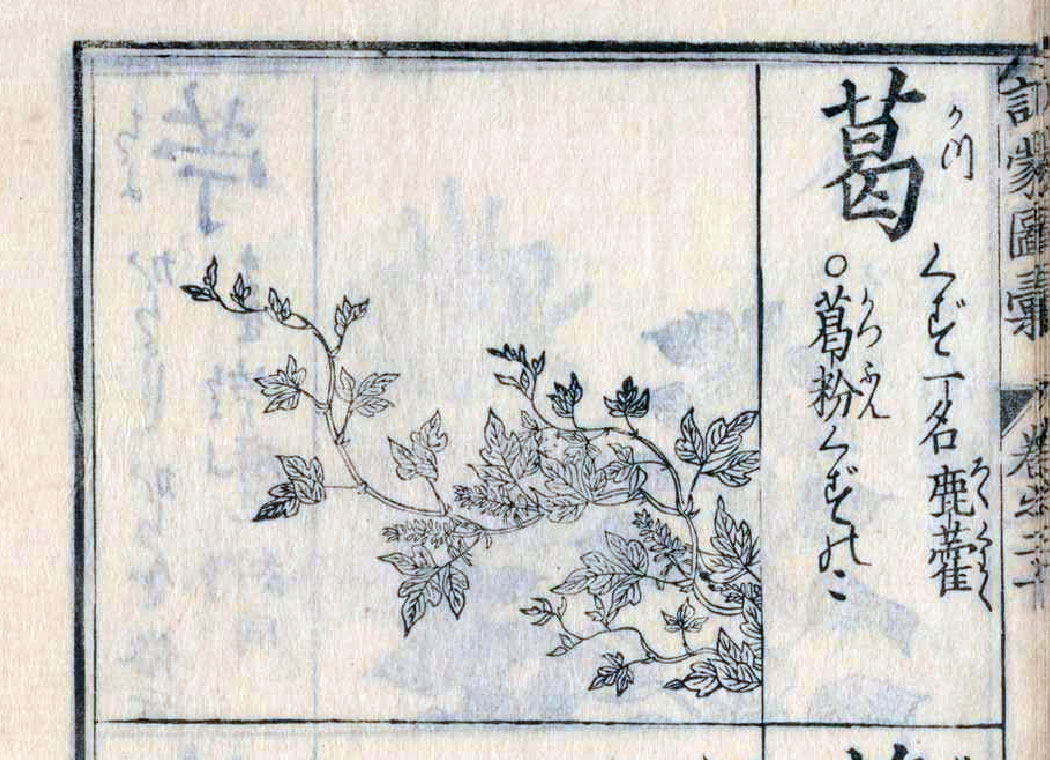 訓蒙圖彙 卷之二十
かつ
葛
くず一名鹿藿
ろくくわく
○葛粉くずのこ
かつふん